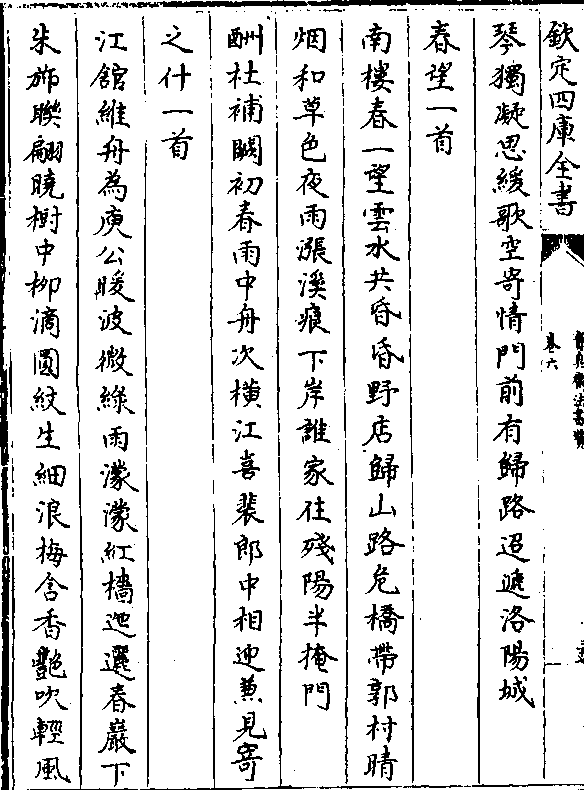 欽定四庫全書
卷六
琴獨凝思緩歌空寄情門前有歸路迢遞洛陽城
春望一首
南樓春一望雲水共昏昏野店歸山路危橋帶郭村晴
烟和草色夜雨漲溪痕下岸誰家住殘陽半掩門
酬杜補闕初春雨中舟次橫江喜裴郎中相迎兼見寄
之什一首
江館維舟為庾公暖波微綠雨濛濛紅檣迤邐春巖下
朱旆聯翩曉樹中柳滴圓紋生細浪梅含香艷吹輕風